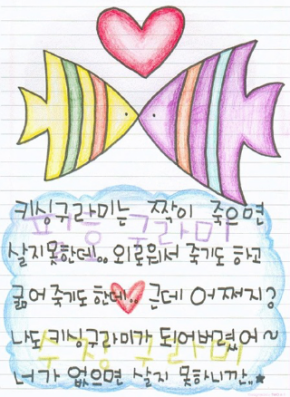 키싱구라미는 짝이 죽으면
살지못한데.. 외로워서 죽기도 하고
굶어 죽기도 한데.. 근데 어쩌지?
나도 키싱구라미가 되어버렸어~
너가 없으면 살지 못하니깐..★